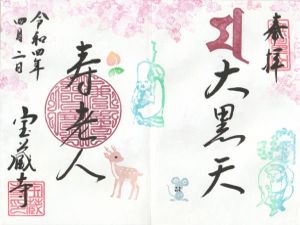 奉拝
大黒天
寿老人
令和四年
四月二日
宝蔵寺